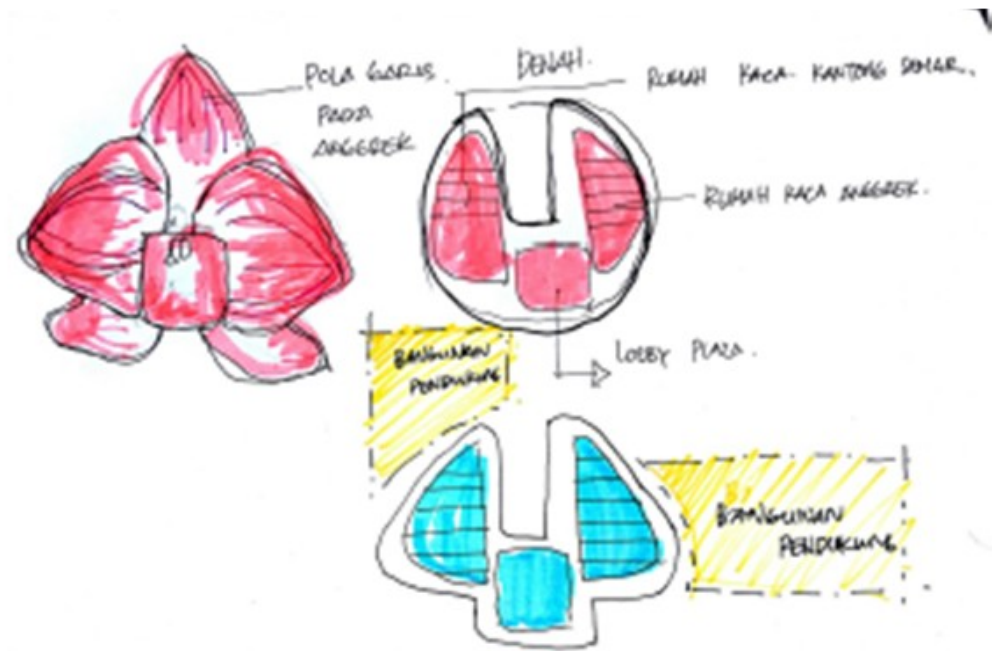 POLA GARIS
PADA
ANGGREK
DENAH.
RUMAH KACA KANTONG SEMAR.
RUMAH KACA ANGGREK.
LOBBY PLAZA.
BANGUNAN
PENDUKUNG
BANGUNAN
PENDUKUNG